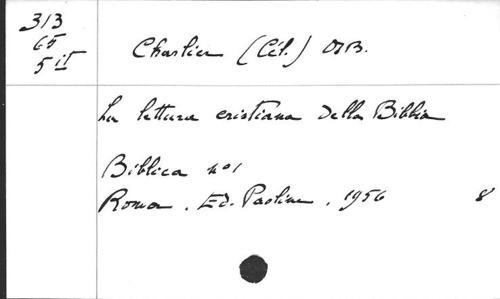 313
65
5 it
Charlier (Cél.) OSB.
La lettura cristiana della Bibbia
Biblica nº 1
Roma. Ed. Paoline, 1956 8